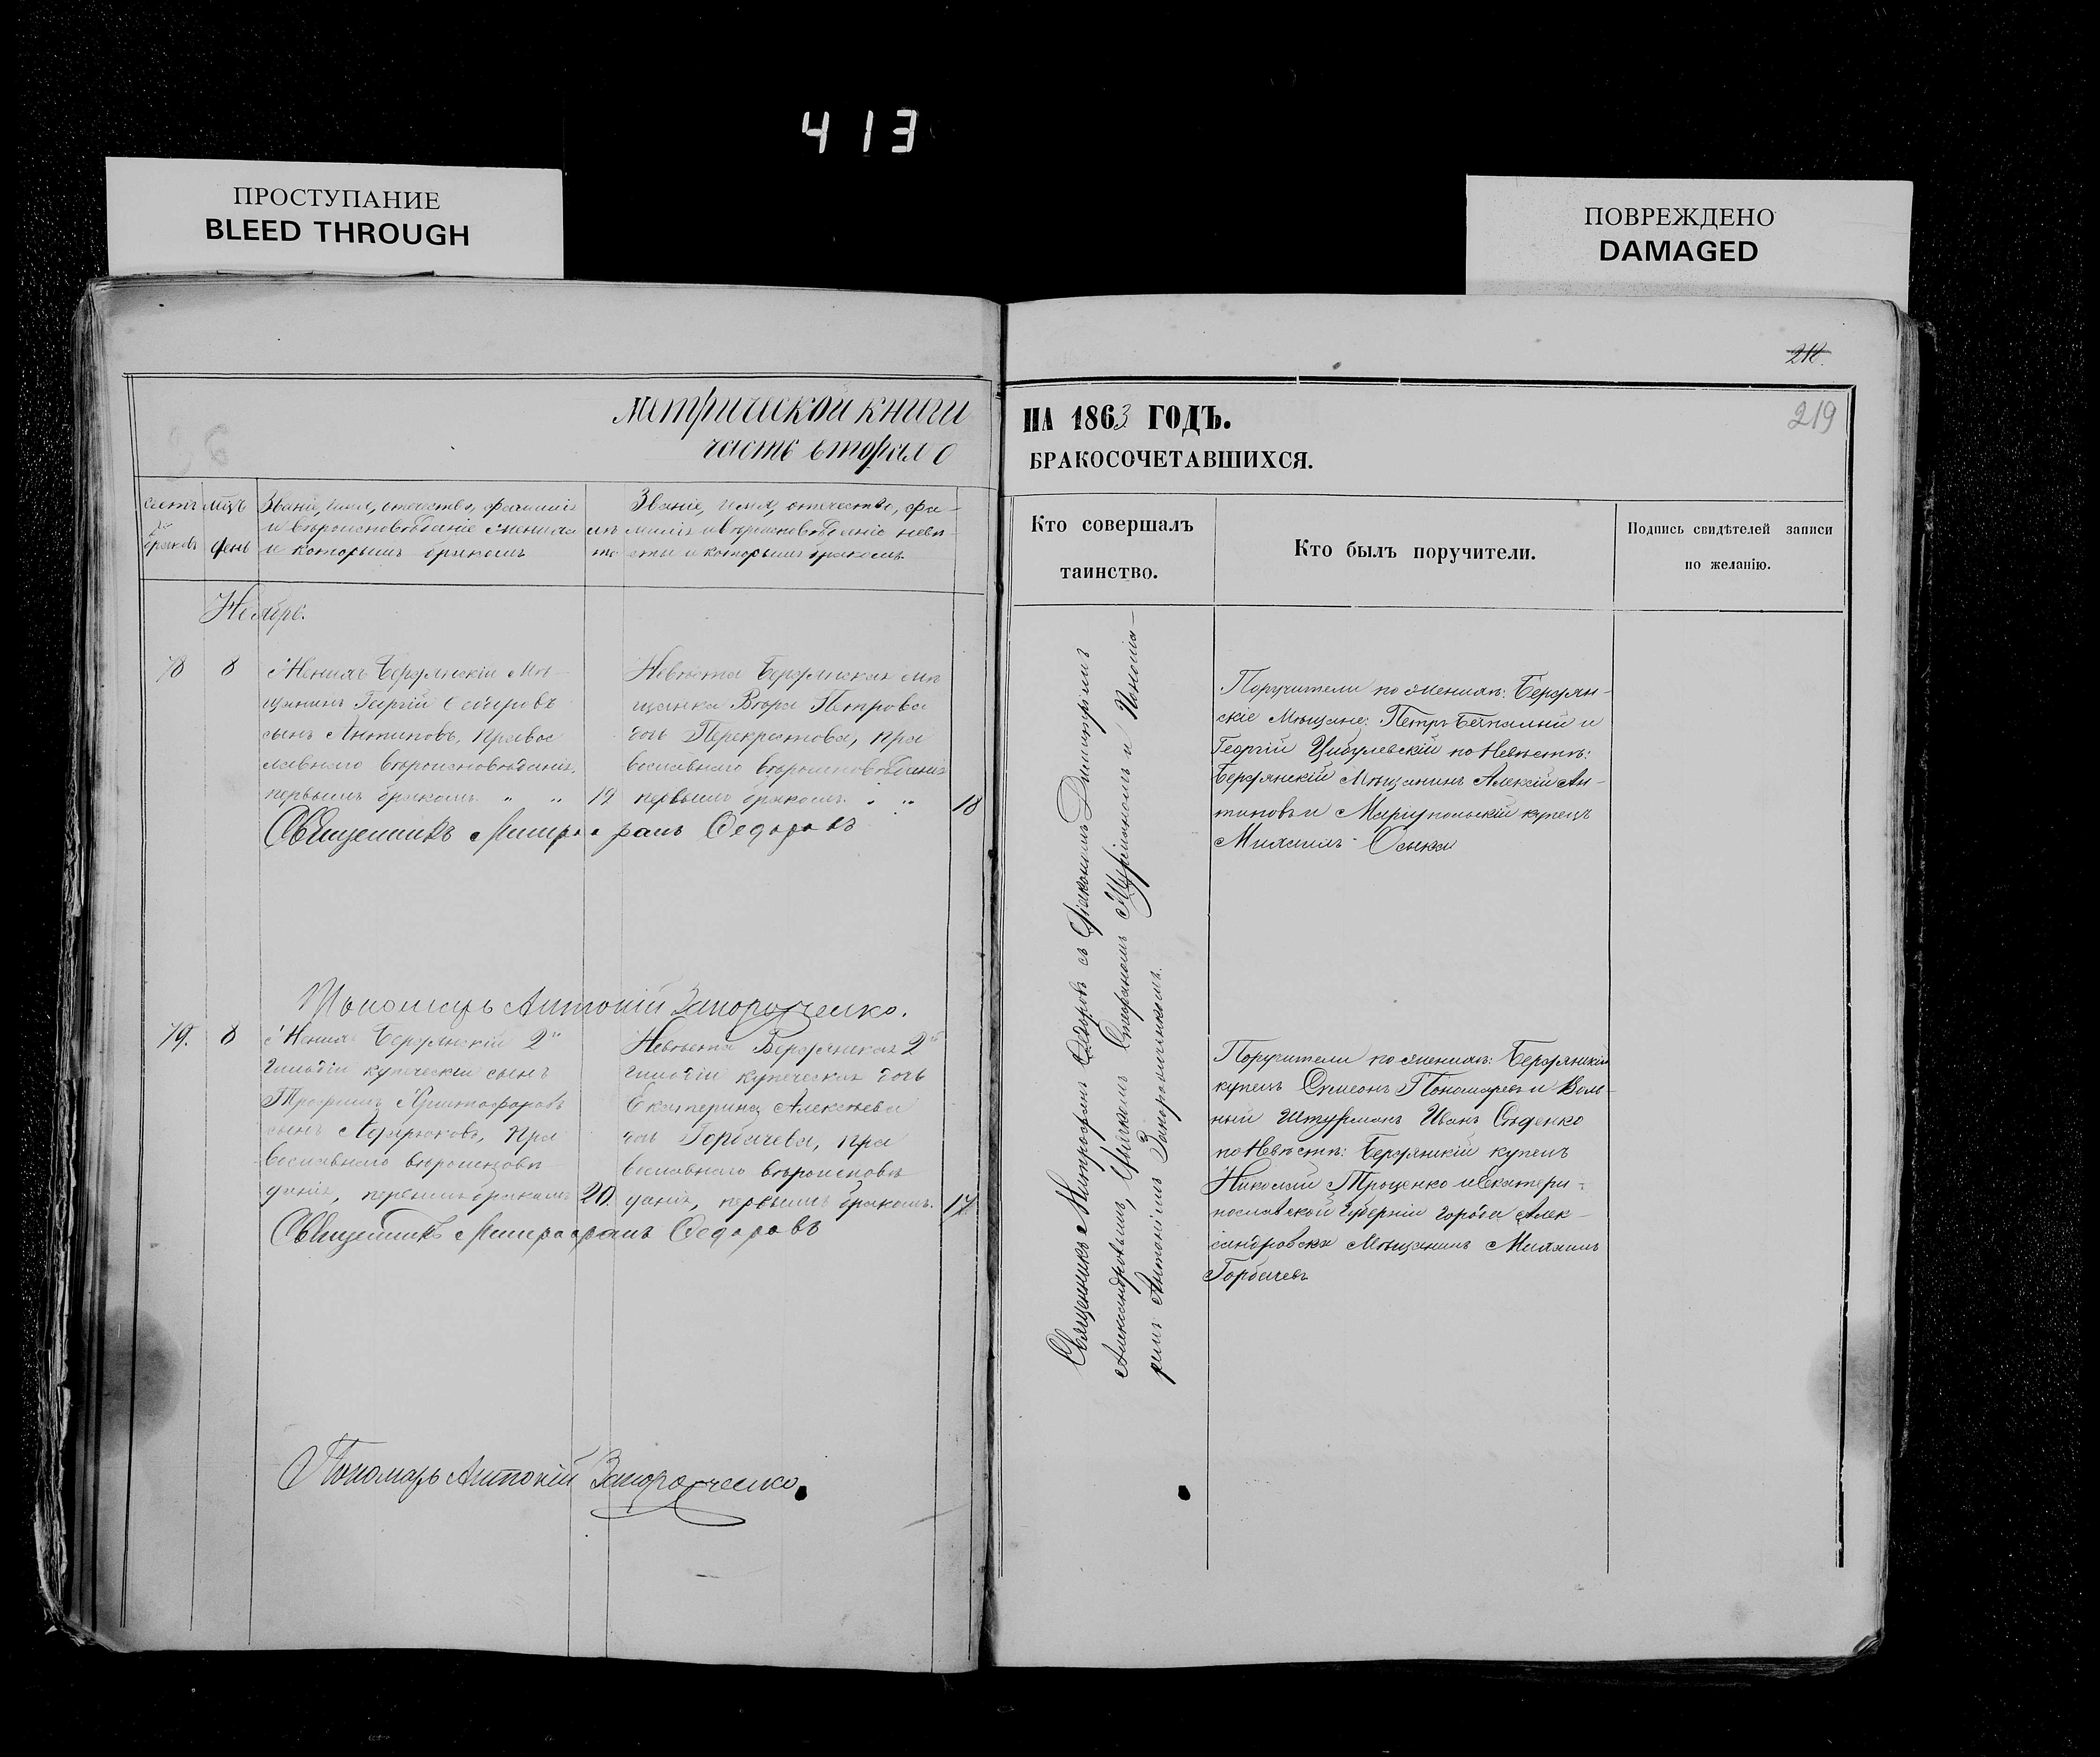 413
ПРОСТУПАНИЕ
BLEED THROUGH
ПОВРЕЖДЕНО
DAMAGED
метрической книги
часть вторая о
счетъ браковъ
мѣц день
Званіе, имя, отечество, фамилія
и вѣроисповѣданіе жениха
и которымъ бракомъ
Званіе, имя, отечество, фа-
милія и вѣроисповѣданіе невѣ
сты и которымъ бракомъ
Ноябрь.
78 8 Женихъ Бердянскій Мѣ-
щанинъ Георгій
сынъ Антиповъ, Правос
лавнаго вѣроисповѣданія,
первымъ бракомъ " " 19
Невѣста Бердянская мѣ
щанка Петрова
дочь Перекрестова, пра
вославнаго вѣроисповѣданія
первымъ бракомъ. " " 18
Священникъ Митрофанъ Федоровъ
Пономарь Антоній Запорожченко.
79. 8 Женихъ Бердянскій 2й
гильдіи купеческій сынъ
Трофимъ Христофоровъ
сынъ пра
вославнаго вѣроисповѣ
данія, первымъ бракомъ 20.
Невѣста Бердянская 2й
гильдіи купеческая дочь
Екатерина Алексѣева
дочь Горбачева, пра
вославнаго вѣроисповѣ
данія, первымъ бракомъ. 17
Священникъ Митрофанъ Федоровъ
Пономарь Антоній Запорожченко.
212.
219
НА 1863 ГОДЪ.
БРАКОСОЧЕТАВШИХСЯ.
Кто совершалъ
таинство.
Кто былъ поручители.
Подпись свидѣтелей записи
по желанію.
Священникъ Митрофанъ Федоровъ съ Діакономъ Димитріемъ
Александровымъ, Дьячкомъ Стефаномъ и Понома-
ремъ Антоніемъ
Поручители по женихѣ: Бердян-
скіе Мѣщане: Петръ и
Георгій Цибулевскій по Невѣстѣ:
Бердянскій Мѣщанинъ Алексѣй Ан-
типовъ и Маріупольскій купецъ
Михаилъ
Поручители по женихѣ: Бердянскій
купецъ Симеонъ Пономаревъ и Воль-
ный Штурманъ Иванъ Сѣденко
по Невѣстѣ: Бердянскій купецъ
Николай Троценко и Екатери-
нославской Губерніи города Алек-
сандровска Мѣщанинъ Михаилъ
Горбачевъ